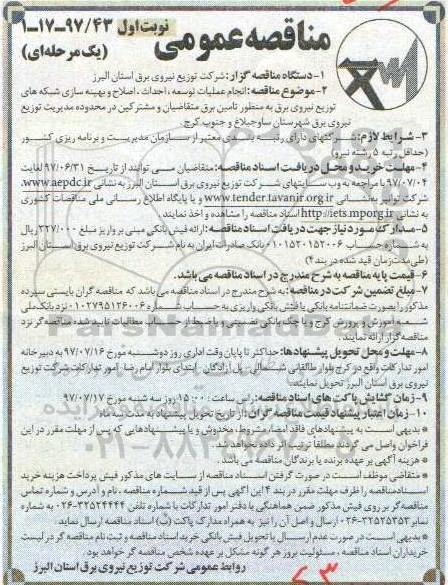 مناقصه عمومی
نوبت اول ۹۷/۴۳-۱۷-۱
(یک مرحله ای)
۱- دستگاه مناقصه گزار: شرکت توزیع نیروی برق استان البرز
۲- موضوع مناقصه: انجام عملیات توسعه، احداث، اصلاح و بهینه سازی شبکه های
توزیع نیروی برق به منظور تامین برق متقاضیان و مشترکین در محدوده مدیریت توزیع
نیروی برق شهرستان ساوجبلاغ و جنوب کرج.
۳- شرایط لازم: شرکتهای دارای رتبه بندی معتبر از سازمان مدیریت و برنامه ریزی کشور
(حداقل رتبه ۵ رشته نیرو)
۴- مهلت خرید و محل دریافت اسناد مناقصه: متقاضیان می توانند از تاریخ ۹۷/۰۶/۳۱ لغایت
۹۷/۰۷/۰۴ با مراجعه به وب سایتهای شرکت توزیع نیروی برق استان البرز به نشانی www.aepdc.ir،
شرکت توانیر به نشانی www.tender.tavanir.org.ir و یا پایگاه اطلاع رسانی ملی مناقصات کشوری
به نشانی http://iets.mporg.ir اسناد مناقصه را مشاهده و اخذ نمایند.
۵- مدارک مورد نیاز جهت دریافت اسناد مناقصه: ارائه فیش بانکی مبنی بر واریز مبلغ ۲۲۷/۰۰۰ ریال
به شماره حساب ۰۱۰۱۵۲۰۱۵۲۰۰۶ بانک صادرات ایران به نام شرکت توزیع نیروی برق استان البرز
(طی مدت زمان قید شده در بند ۴)
۶- قیمت پایه مناقصه به شرح مندرج در اسناد مناقصه می باشد.
۷- مبلغ تضمین شرکت در مناقصه: به شرح مندرج در اسناد مناقصه می باشد که مناقصه گران بایستی سپرده
مذکور را بصورت ضمانتنامه بانکی یا فیش بانکی واریزی به حساب سپرده ۰۱۰۲۷۹۵۱۲۶۰۰۶ نزد بانک ملی
شعبه آموزش و پرورش کرج و یا چک بانکی تضمینی و یا ضبط از حساب مطالبات تایید شده مناقصه گر نزد
مناقصه گزار ارائه نمایند.
۸- مهلت و محل تحویل پیشنهادها: حداکثر تا پایان وقت اداری روز دوشنبه مورخ ۹۷/۰۷/۱۶ به دبیرخانه
امور تدارکات واقع در کرج بلوار طالقانی شمالی - پل آزادگان - ابتدای بلوار امام رضا - امور تدارکات شرکت توزیع
نیروی برق استان البرز تحویل نمایند.
۹- زمان گشایش پاکت های اسناد مناقصه: راس ساعت ۱۵:۰۰ روز سه شنبه مورخ ۹۷/۰۷/۱۷
۱۰- زمان اعتبار پیشنهاد قیمت مناقصه گران: از تاریخ تحویل پیشنهاد به مدت سه ماه
* بدیهی است به پیشنهادهای فاقد امضاء، مشروط، مخدوش و یا پیشنهادهایی که پس از مهلت مقرر در این
فراخوان واصل می گردند مطلقا ترتیب اثر داده نخواهد شد.
* هزینه آگهی بر عهده برنده یا برندگان مناقصه می باشد.
* متقاضی موظف است در صورت گرفتن اسناد مناقصه از سایت های مذکور فیش پرداخت هزینه خرید
اسناد مناقصه را ظرف مهلت مقرر در بند ۴ این آگهی پس از قید شماره مناقصه، نام و آدرس و شماره تماس
مناقصه گر بر روی فیش مذکور ضمن هماهنگی با دفتر امور تدارکات با شماره تلفن ۳۲۵۲۴۴۴۴-۰۲۶ به نمابر
۳۲۵۲۵۳۵۳-۰۲۶ ارسال و اصل آن را نیز به همراه مدارک پاکت (ب) اسناد مناقصه ارسال نماید.
* بدیهی است در صورت عدم ارسال یا تحویل فیش بانکی خرید اسناد مناقصه و ثبت نام مناقصه گر در لیست
خریداران اسناد مناقصه، مسئولیت بروز هر گونه مشکل بر عهده شخص مناقصه گر خواهد بود.
روابط عمومی شرکت توزیع نیروی برق استان البرز